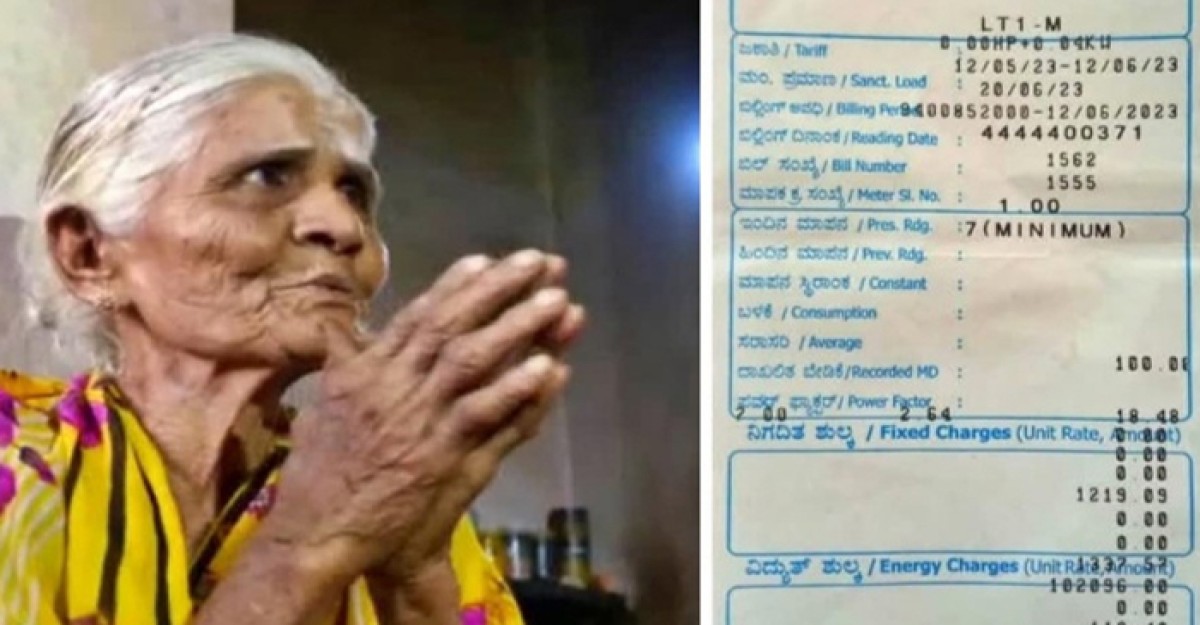 LT1-M
0.00HP+0.04KW
ಜಕಾತಿ / Tariff
12/05/23-12/06/23
ಮಂ. ಪ್ರಮಾಣ / Sanct. Load :
20/06/23
ಬಿಲ್ಲಿಂಗ್ ಅವಧಿ / Billing
00852000-12/06/2023
ಬಿಲ್ಲಿಂಗ್ ದಿನಾಂಕ / Reading Date : 4444400371
ಬಿಲ್ ಸಂಖ್ಯೆ / Bill Number : 1562
1555
ಮಾಪಕ ಕ್ರ ಸಂಖ್ಯೆ / Meter Sl. No. : 1.00
ಇಂದಿನ ಮಾಪನ / Pres. Rdg. : 7(MINIMUM)
ಹಿಂದಿನ ಮಾಪನ / Prev. Rdg. :
ಮಾಪನ ಸ್ಥಿರಾಂಕ / Constant :
ಬಳಕೆ / Consumption :
ಸರಾಸರಿ / Average :
ದಾಖಲಿತ ಬೇಡಿಕೆ/Recorded MD : 100.0
ಪವರ್ ಫ್ಯಾಕ್ಟರ್ / Power Factor :
2.00 2.64 18.48
ನಿಗದಿತ ಶುಲ್ಕ / Fixed Charges (Unit Rate, Amount)
0.00
0.00
0.00
1219.09
0.00
0.00
ವಿದ್ಯುತ್ ಶುಲ್ಕ / Energy Charges (Unit Rate, Amount)
1337.57
102096.00
0.00